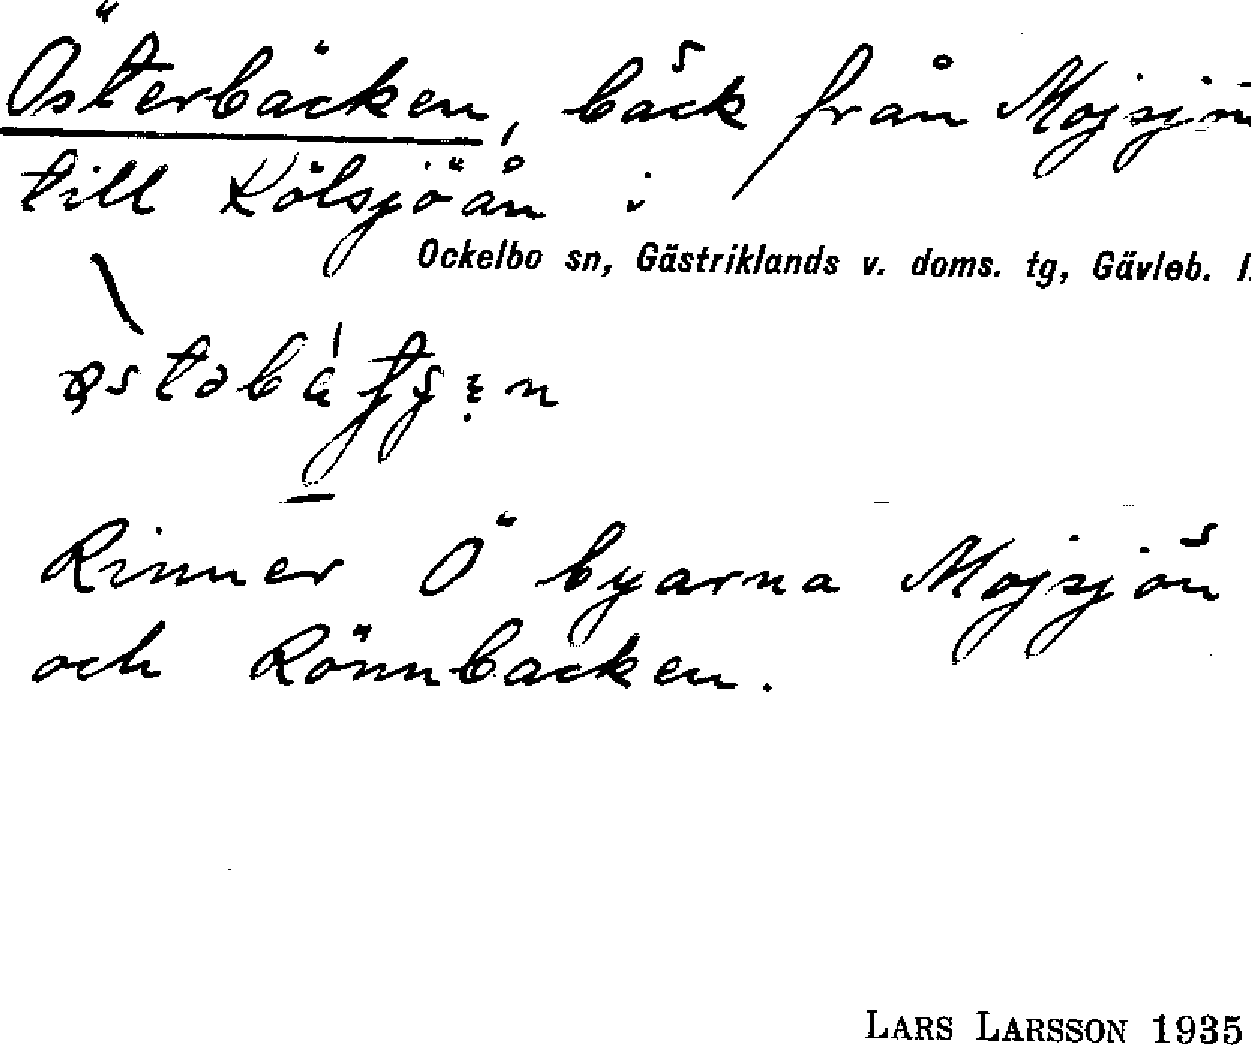 Österbäcken, bäck från Mojsjön
till Kölsjöån i
Ockelbo sn, Gästriklands v. doms. tg, Gävleb. l.
Rinner Ö byarna Mojsjön
och Rönnbacken.
LARS LARSSON 1935